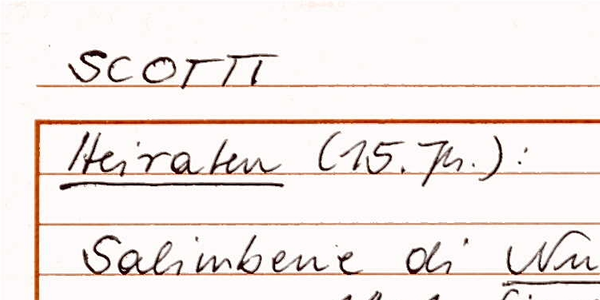 SCOTTI
Heiraten (15. Jh.):
Salimbene di